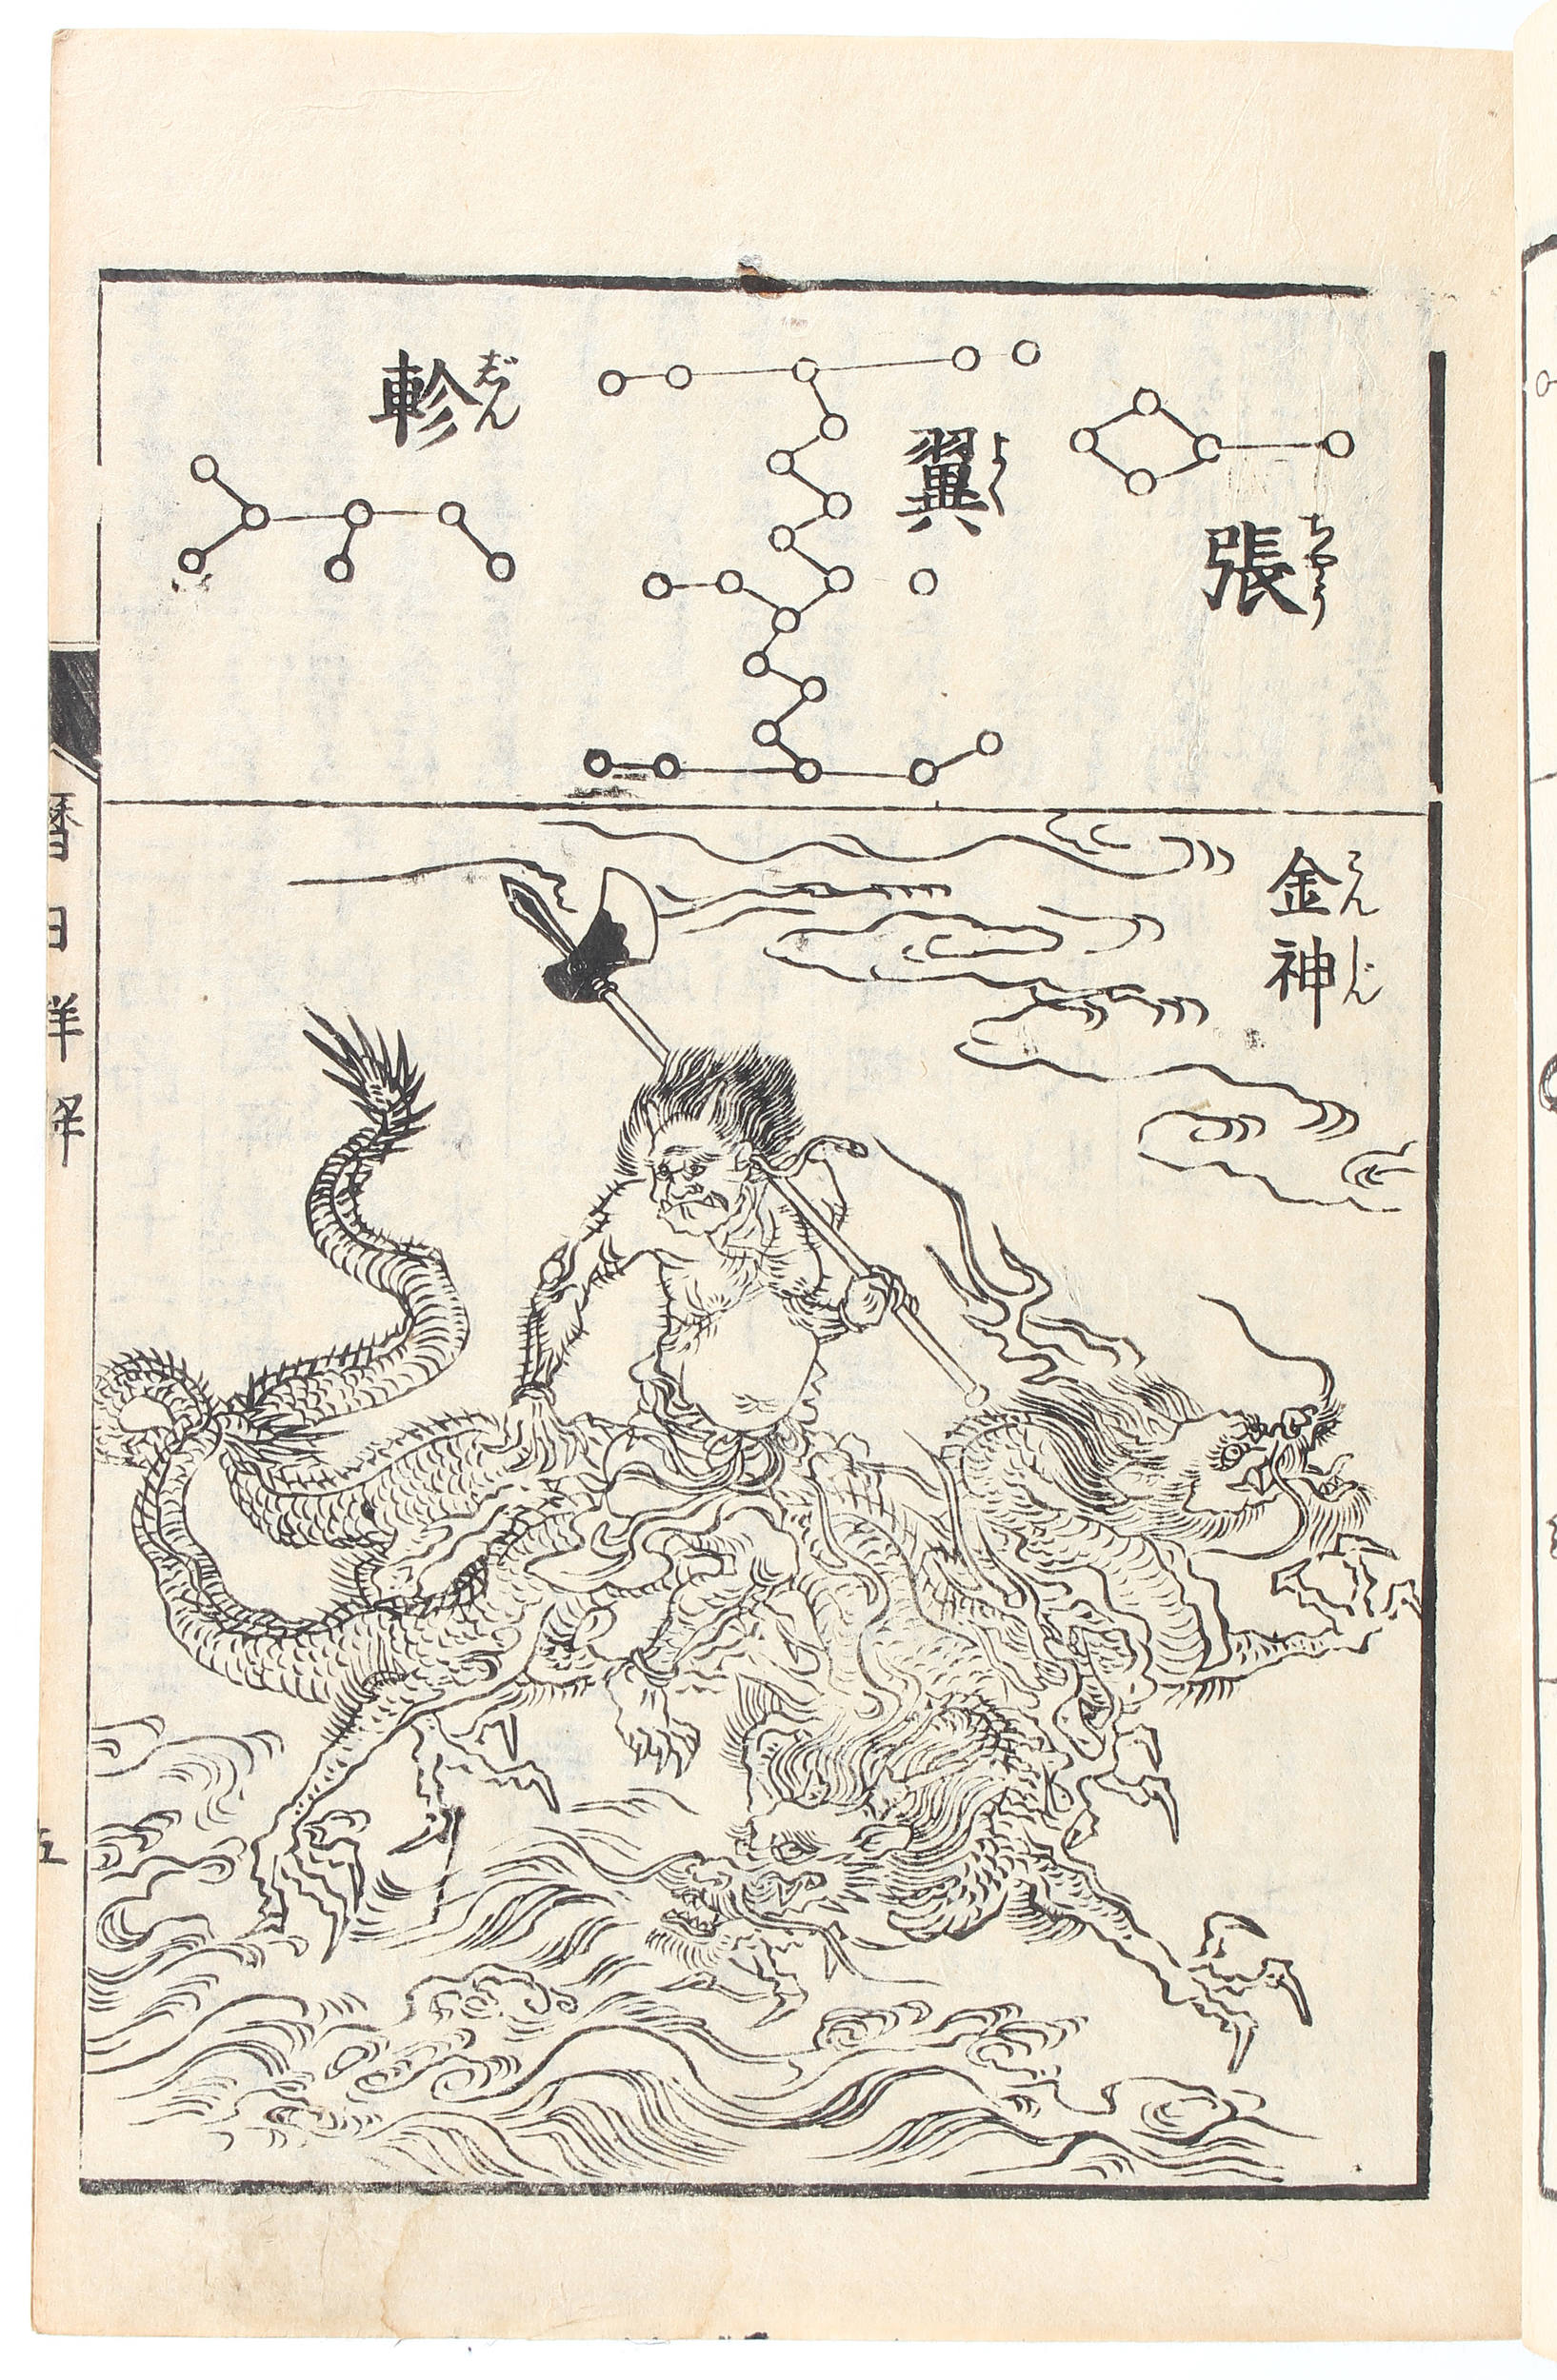 張 ちやう
翼 よく
軫 ぢん
金神 こんじん
暦日詳解
五